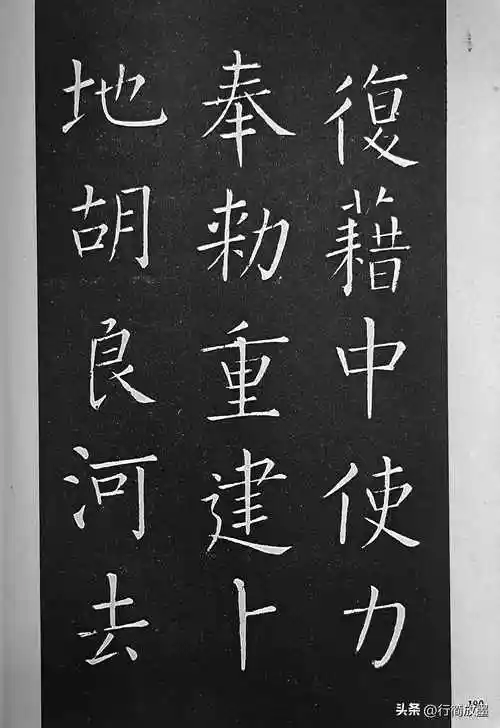 復藉中使力
奉勅重建卜
地胡良河去
190
头条 @行简放墨